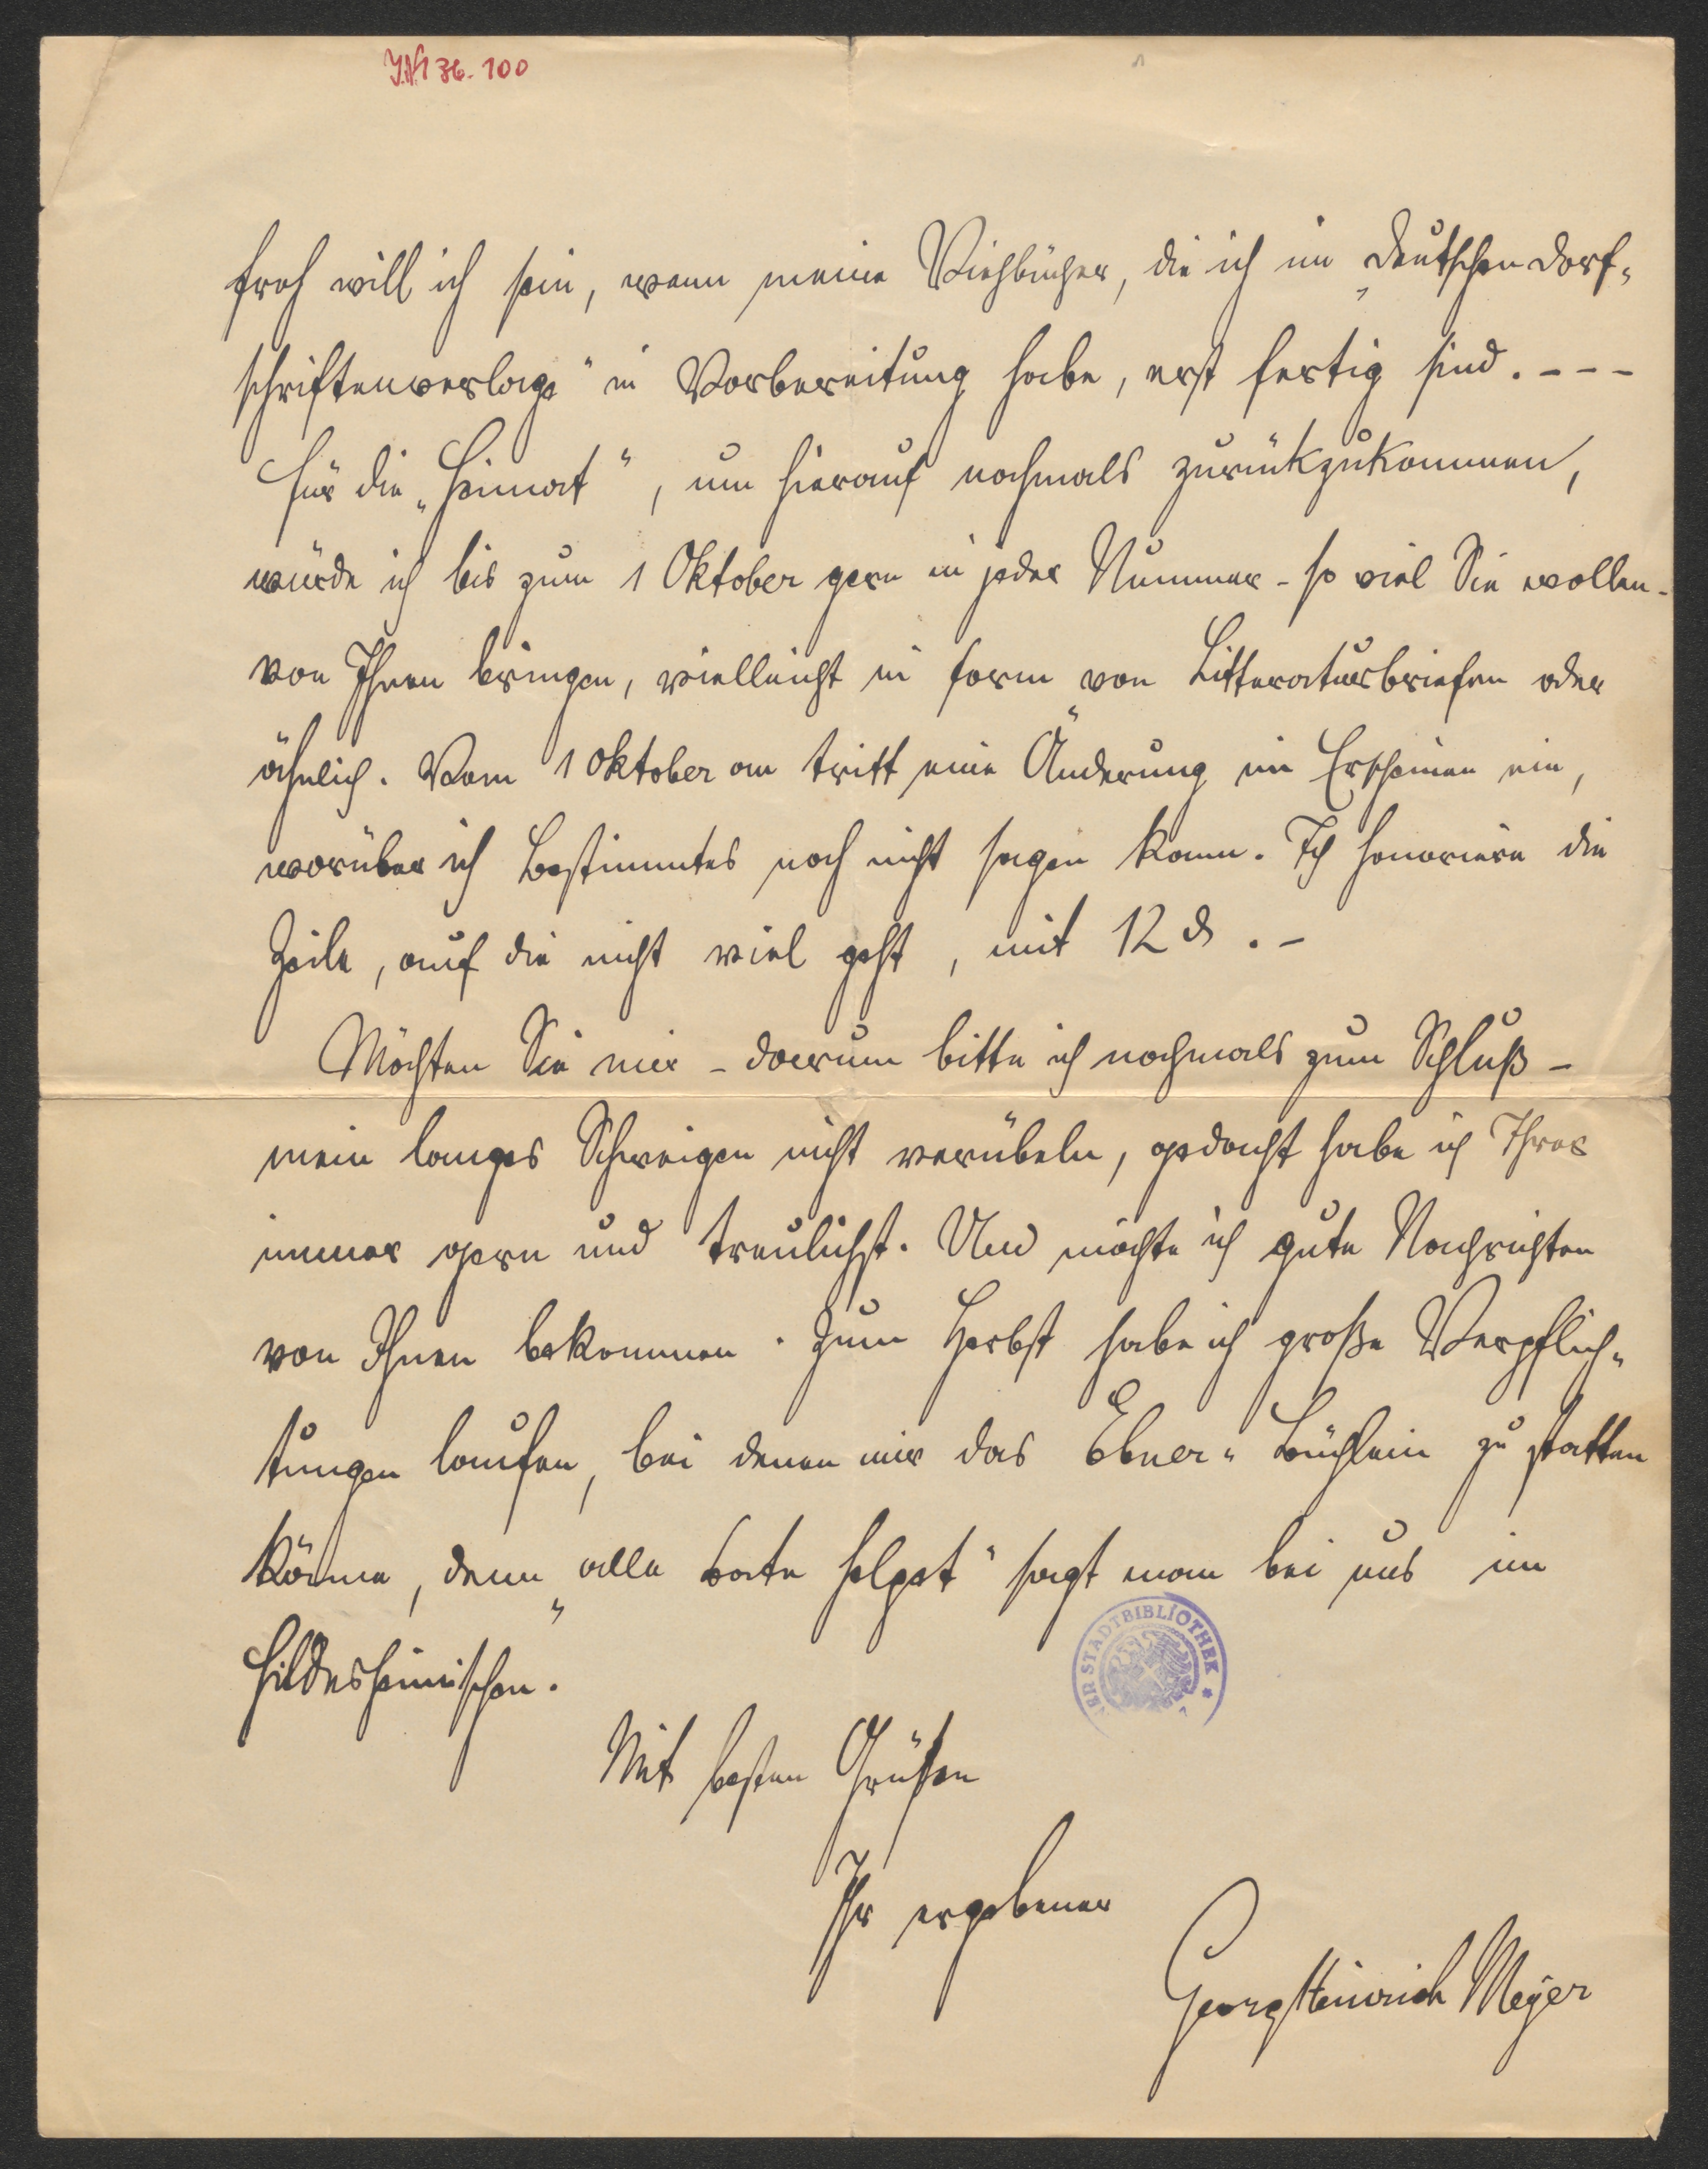 J.N. 136.100
froh will ich sein, wenn meine Viehbücher, die ich im „Deutschen Dorf-
schriftenverlage" in Vorbereitung habe, erst fertig sind. - - -
Für die „Heimat", um hierauf nochmals zurückzukommen,
würde ich bis zum 1 Oktober gern in jeder Nummer - so viel Sie wollen -
von Ihnen bringen, vielleicht in Form von Litteraturbriefen oder
ähnlich. Vom 1 Oktober an tritt eine Änderung im Erscheinen ein,
worüber ich Bestimmtes noch nicht sagen kann. Ich honoriere die
Zeile, auf die nicht viel geht, mit 12 ₰. -
Möchten Sie mir - darum bitte ich nochmals zum Schluß -
mein langes Schweigen nicht verübeln, gedacht habe ich Ihrer
immer gern und treulichst. Und möchte ich gute Nachrichten
von Ihnen bekommen. Zum Herbst habe ich große Verpflich-
tungen laufen, bei denen mir das Ebner-Büchlein zu statten
käme, denn „alle Bate helpet" sagt man bei uns im
Hildesheimischen.
Mit besten Grüßen
Ihr ergebener
Georg Heinrich Meyer
ER STADTBIBLIOTHEK *